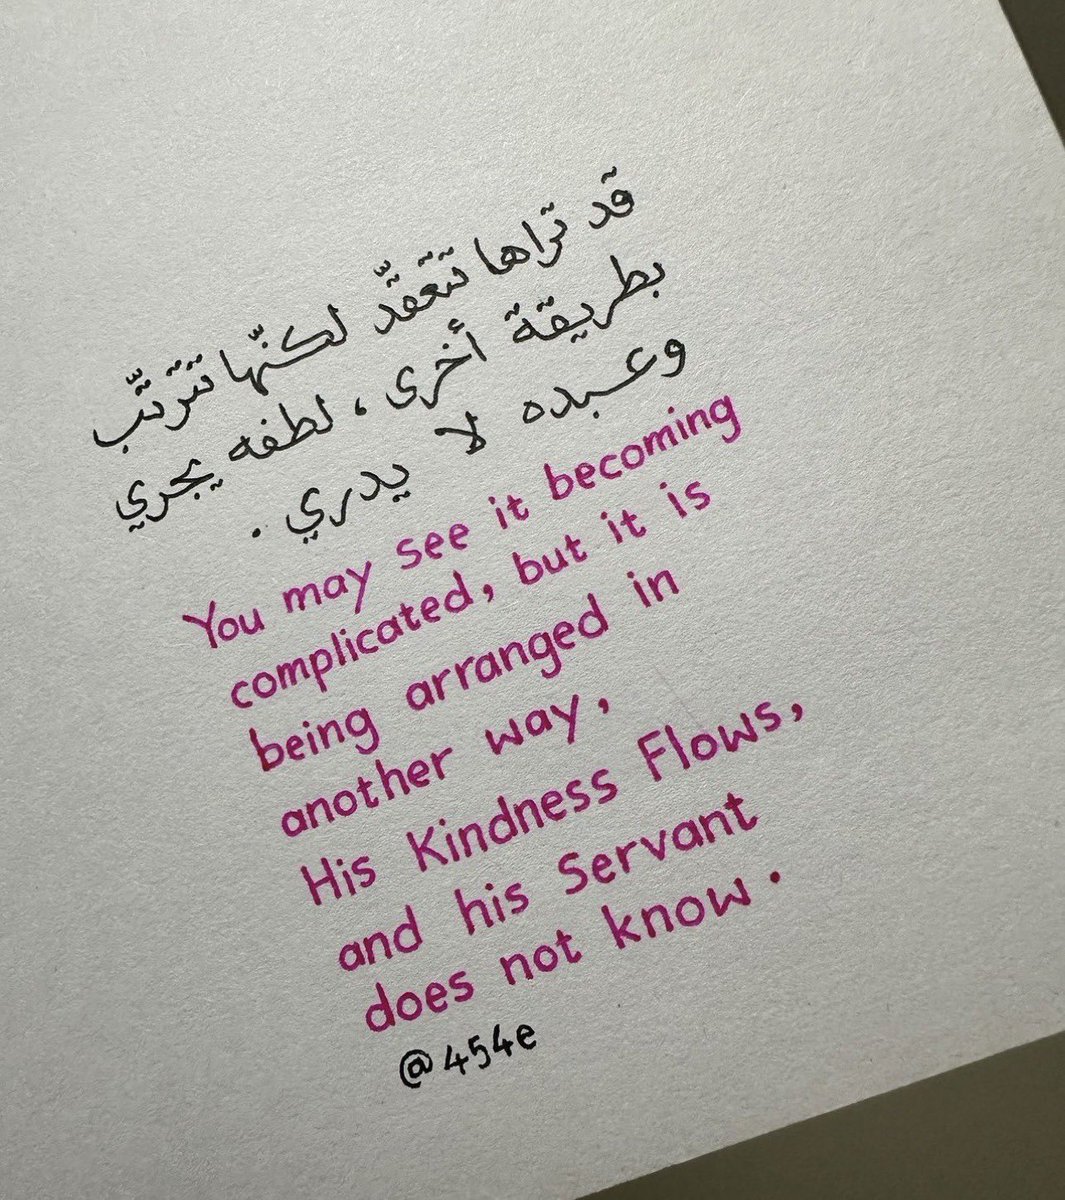 قد تراها تتعقّد لكنّها تترتّب
بطريقة أخرى، لطفه يجري
وعبده لا يدري.
You may see it becoming
complicated, but it is
being arranged in
another way,
His Kindness Flows,
and his Servant
does not know.
@454e